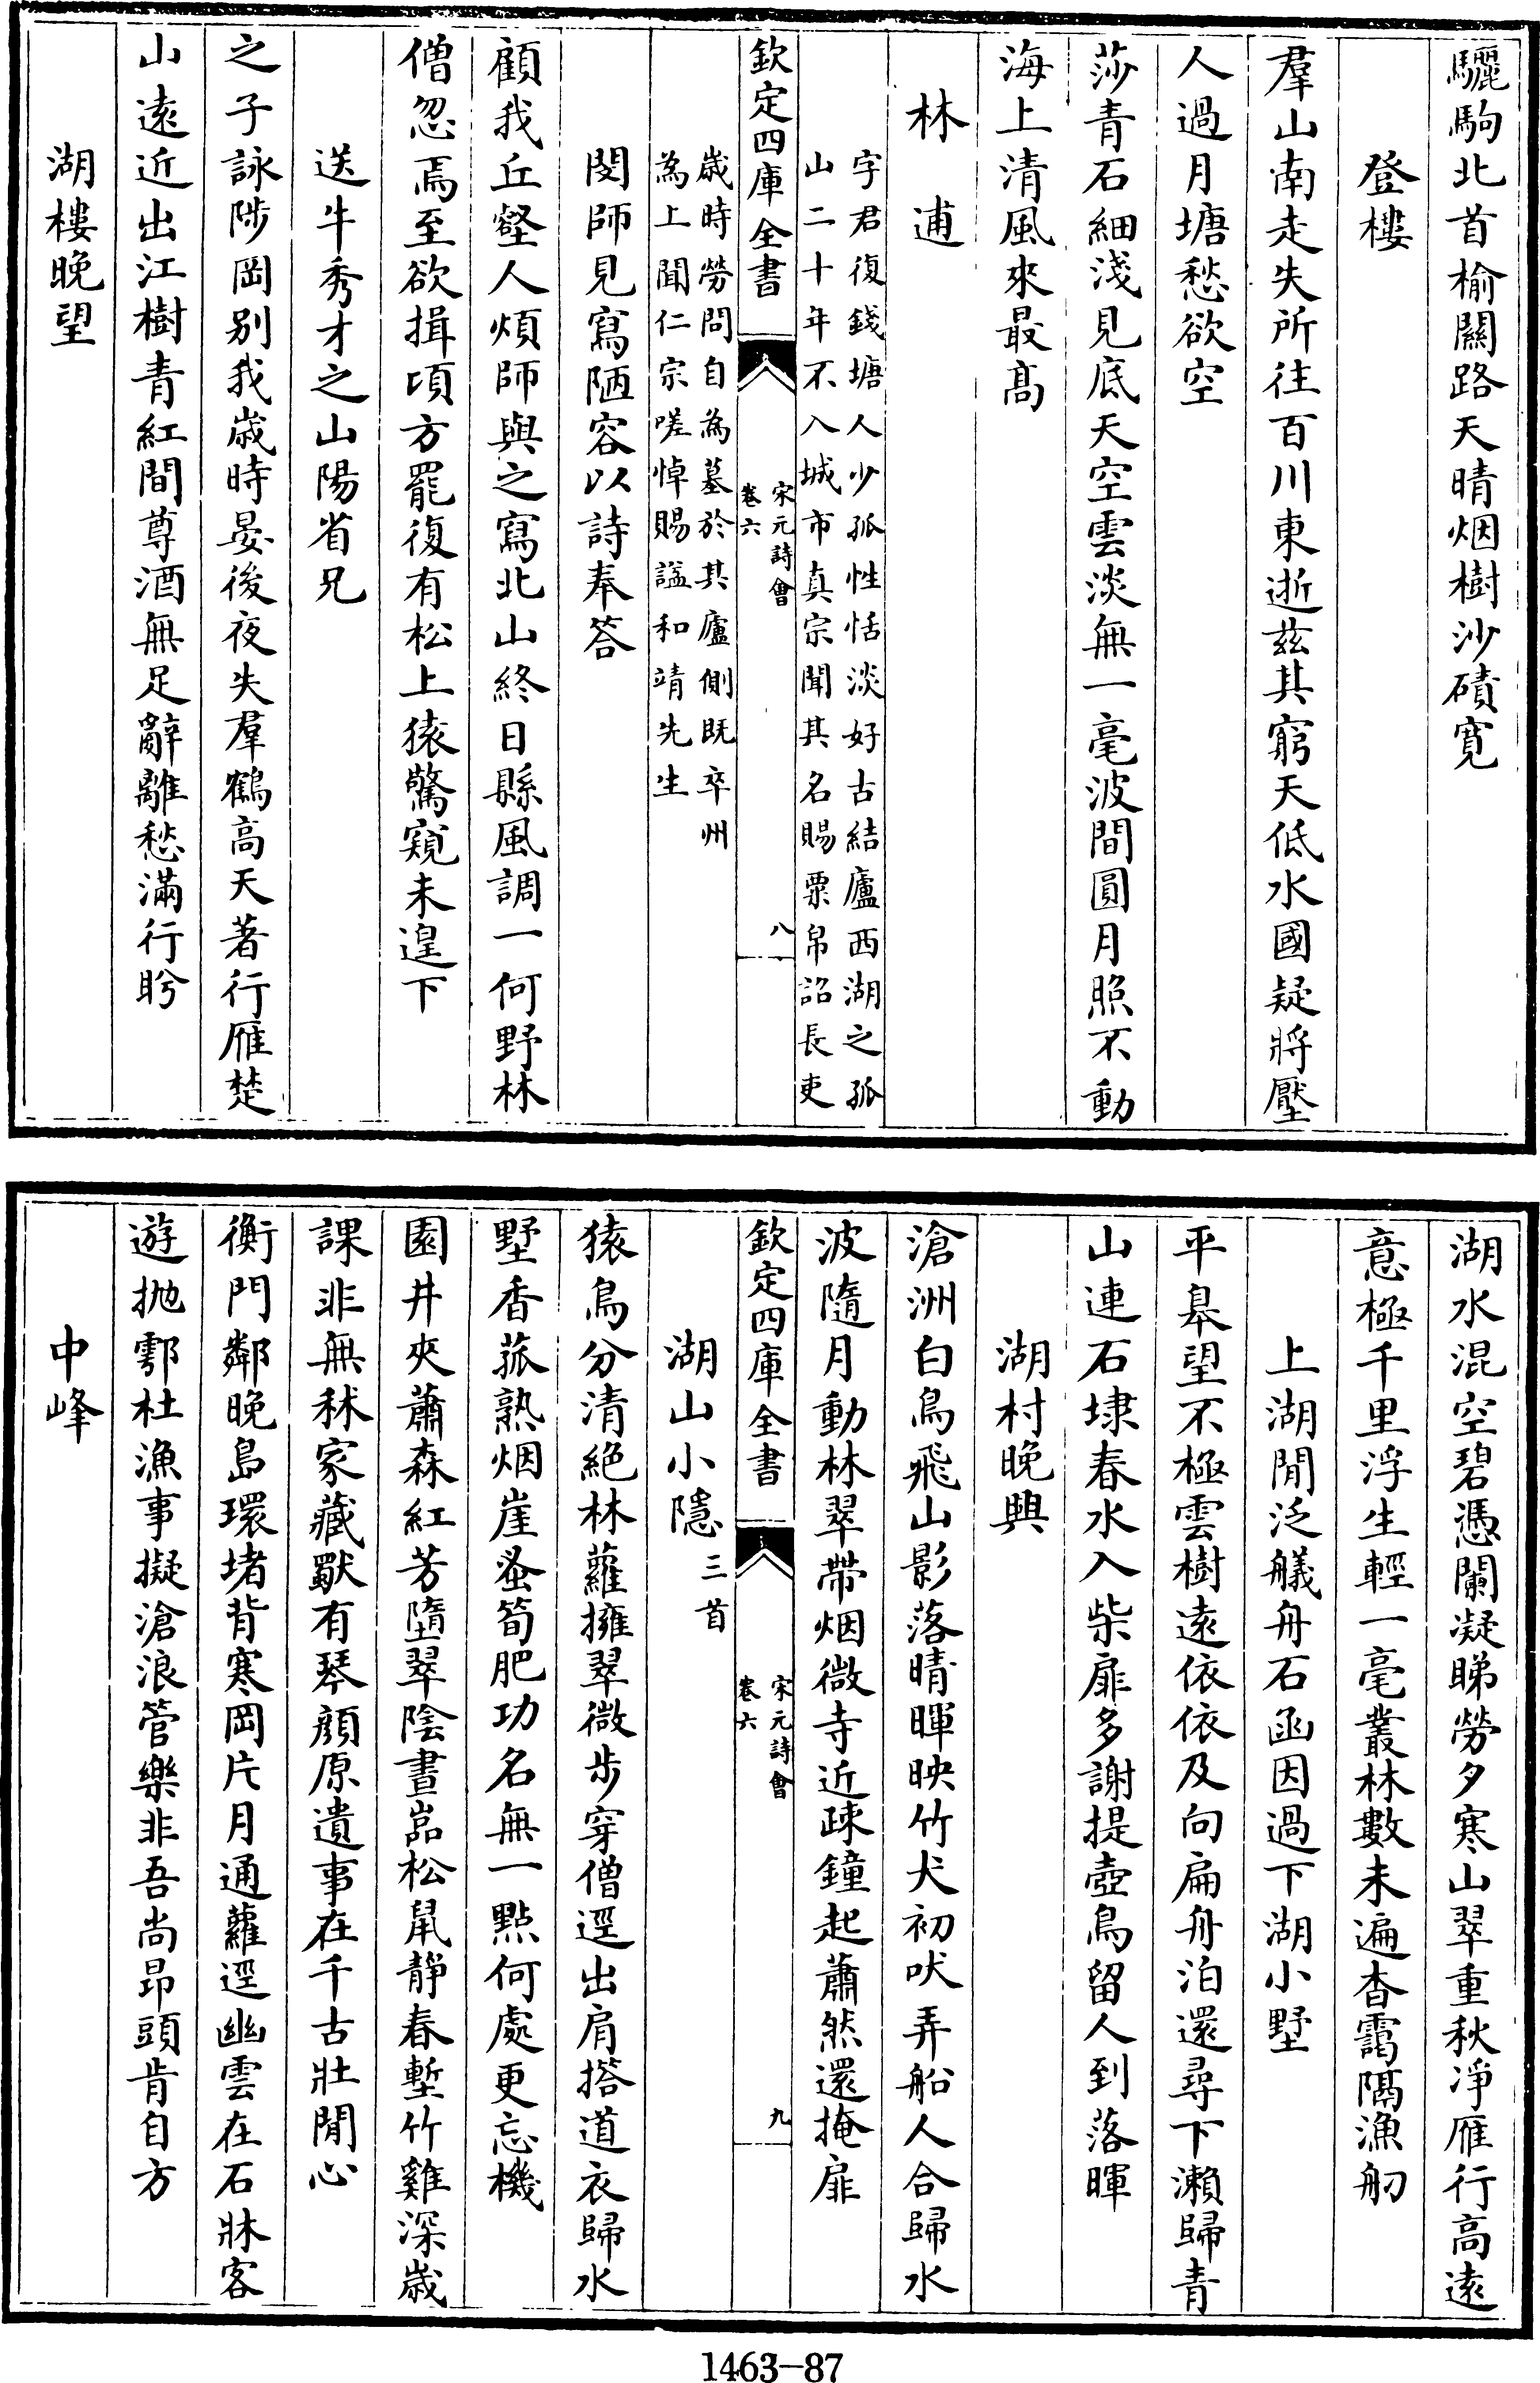 驪駒北首榆關路天晴烟樹沙磧寛
登樓
羣山南走失所往百川東逝兹其窮天低水國疑將壓
人過月塘愁欲空
莎青石細淺見底天空雲淡無一毫波間圓月照不動
海上清風來最高
林逋
字君復錢塘人少孤性恬淡好古結廬西湖之孤
山二十年不入城市真宗聞其名賜粟帛詔長吏
欽定四庫全書
宋元詩會
卷六
八
歲時勞問自為墓於其廬側既卒州
為上聞仁宗嗟悼賜諡和靖先生
閔師見寫陋容以詩奉答
顧我丘壑人煩師與之寫北山終日縣風調一何野林
僧忽焉至欲揖頃方罷復有松上猿驚窺未遑下
送牛秀才之山陽省兄
之子詠陟岡别我歳時晏後夜失羣鶴高天著行雁楚
山遠近出江樹青紅間尊酒無足辭離愁滿行盻
湖樓晚望
湖水混空碧憑闌凝睇勞夕寒山翠重秋凈雁行高遠
意極千里浮生輕一毫叢林數未遍杳靄隔漁舠
上湖閒泛艤舟石函因過下湖小墅
平皐望不極雲樹遠依依及向扁舟泊還尋下瀨歸青
山連石埭春水入柴扉多謝提壺鳥留人到落暉
湖村晚興
滄洲白鳥飛山影落晴暉映竹犬初吠弄船人合歸水
波隨月動林翠帶烟微寺近疎鐘起蕭然還掩扉
欽定四庫全書
宋元詩會
卷六
九
湖山小隱三首
猿鳥分清絶林蘿擁翠微步穿僧逕出肩搭道衣歸水
墅香菰熟烟崖蚤筍肥功名無一點何處更忘機
園井夾蕭森紅芳墮翠陰晝嵓松鼠靜春塹竹雞深歳
課非無秫家藏獸有琴顔原遺事在千古壯閒心
衡門鄰晚島環堵背寒岡片月通蘿逕幽雲在石牀客
遊抛鄠杜漁事擬滄浪管樂非吾尚昂頭肯自方
中峰
1463-87